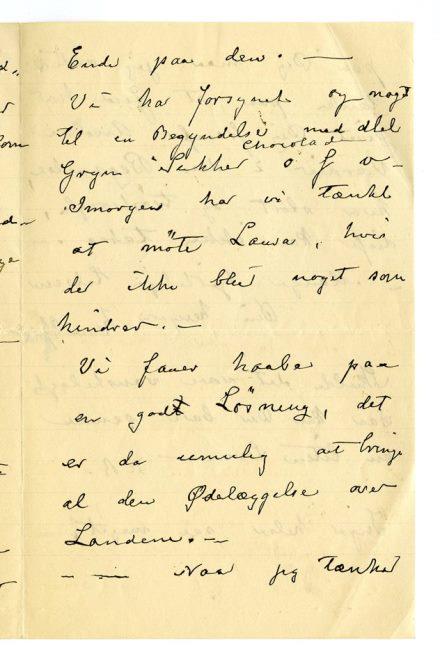 Ende paa den. —
Vi har forsynet og noget
til en Begyndelse med lidt
Chocolade
Gryn Sukker o f v –
Imorgen har vi tænkt
at möte Laura, hvis
der ikke blir noget som
hindrer. —
Vi faaer haabe paa
en godt Lösning, det
er da umulig at bringe
al den Ødelæggelse over
Landene. —
— — Naar jeg tænker